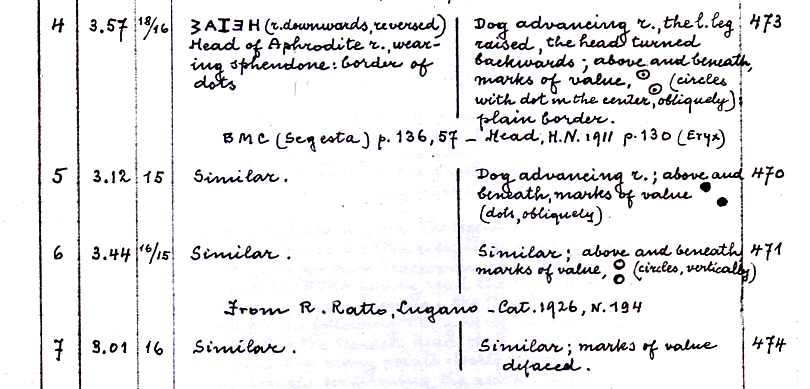 4 3.57 18/16 ƸAIƎH (r. downwards, reversed) Dog advancing r., the l. leg 473
Head of Aphrodite r., wear- raised, the head turned
ing sphendone: border of backwards; above and beneath,
dots marks of value, ⊙ ⊙ (circles
with dot in the center, obliquely):
plain border.
BMC (Segesta) p. 136, 57 – Head, H.N. 1911 p. 130 (Eryx)
5 3.12 15 Similar. Dog advancing r.; above and 470
beneath, marks of value ● ●
(dots, obliquely)
6 3.44 16/15 Similar. Similar; above and beneath 471
marks of value, ○ ○ (circles, vertically)
From R. Ratto, Lugano – Cat. 1926, N. 194
7 3.01 16 Similar. Similar; marks of value 474
defaced.